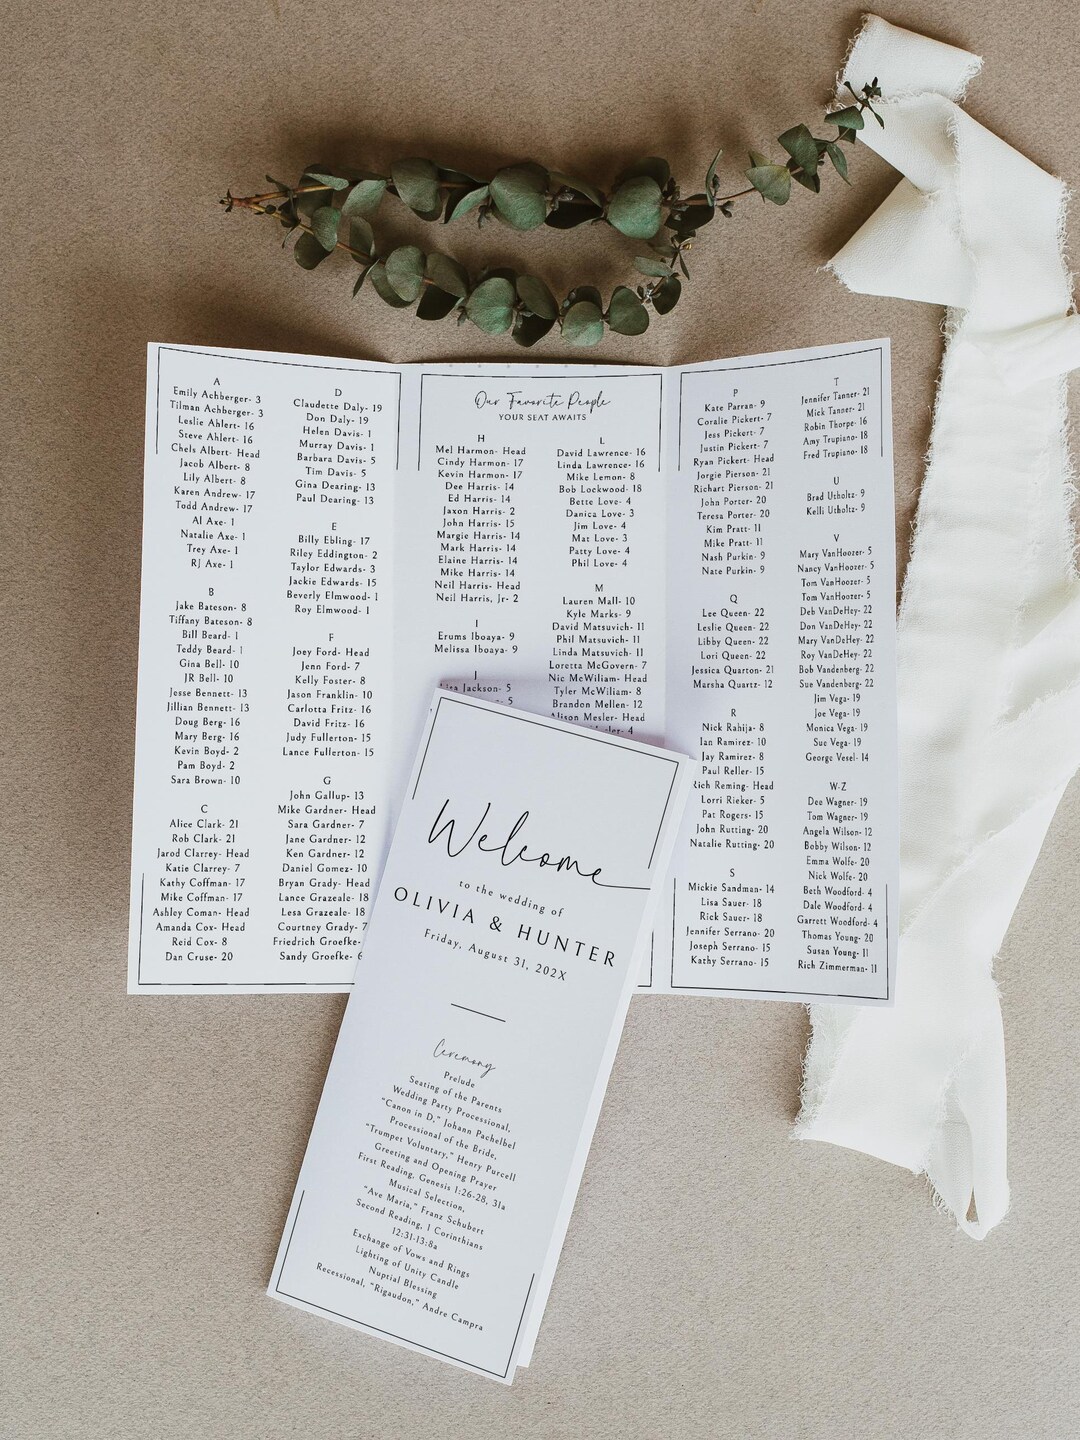 A
Emily Achberger- 3
Tilman Achberger- 3
Leslie Ahlert- 16
Steve Ahlert- 16
Chels Albert- Head
Jacob Albert- 8
Lily Albert- 8
Karen Andrew- 17
Todd Andrew- 17
Al Axe- 1
Natalie Axe- 1
Trey Axe- 1
RJ Axe- 1
B
Jake Bateson- 8
Tiffany Bateson- 8
Bill Beard- 1
Teddy Beard- 1
Gina Bell- 10
JR Bell- 10
Jesse Bennett- 13
Jillian Bennett- 13
Doug Berg- 16
Mary Berg- 16
Kevin Boyd- 2
Pam Boyd- 2
Sara Brown- 10
C
Alice Clark- 21
Rob Clark- 21
Jarod Clarrey- Head
Katie Clarrey- 7
Kathy Coffman- 17
Mike Coffman- 17
Ashley Coman- Head
Amanda Cox- Head
Reid Cox- 8
Dan Cruse- 20
D
Claudette Daly- 19
Don Daly- 19
Helen Davis- 1
Murray Davis- 1
Barbara Davis- 5
Tim Davis- 5
Gina Dearing- 13
Paul Dearing- 13
E
Billy Ebling- 17
Riley Eddington- 2
Taylor Edwards- 3
Jackie Edwards- 15
Beverly Elmwood- 1
Roy Elmwood- 1
F
Joey Ford- Head
Jenn Ford- 7
Kelly Foster- 8
Jason Franklin- 10
Carlotta Fritz- 16
David Fritz- 16
Judy Fullerton- 15
Lance Fullerton- 15
G
John Gallup- 13
Mike Gardner- Head
Sara Gardner- 7
Jane Gardner- 12
Ken Gardner- 12
Daniel Gomez- 10
Bryan Grady- Head
Lance Grazeale- 18
Lesa Grazeale- 18
Courtney Grady- 7
Friedrich Groefke-
Sandy Groefke-
Our Favorite People
YOUR SEAT AWAITS
H
Mel Harmon- Head
Cindy Harmon- 17
Kevin Harmon- 17
Dee Harris- 14
Ed Harris- 14
Jaxon Harris- 2
John Harris- 15
Margie Harris- 14
Mark Harris- 14
Elaine Harris- 14
Mike Harris- 14
Neil Harris- Head
Neil Harris, Jr- 2
I
Erums Iboaya- 9
Melissa Iboaya- 9
J
Jackson- 5
L
David Lawrence- 16
Linda Lawrence- 16
Mike Lemon- 8
Bob Lockwood- 18
Bette Love- 4
Danica Love- 3
Jim Love- 4
Mat Love- 3
Patty Love- 4
Phil Love- 4
M
Lauren Mall- 10
Kyle Marks- 9
David Matsuvich- 11
Phil Matsuvich- 11
Linda Matsuvich- 11
Loretta McGovern- 7
Nic McWiliam- Head
Tyler McWiliam- 8
Brandon Mellen- 12
Alison Mesler- Head
4
P
Kate Parran- 9
Coralie Pickert- 7
Jess Pickert- 7
Justin Pickert- 7
Ryan Pickert- Head
Jorgie Pierson- 21
Richart Pierson- 21
John Porter- 20
Teresa Porter- 20
Kim Pratt- 11
Mike Pratt- 11
Nash Purkin- 9
Nate Purkin- 9
Q
Lee Queen- 22
Leslie Queen- 22
Libby Queen- 22
Lori Queen- 22
Jessica Quarton- 21
Marsha Quartz- 12
R
Nick Rahija- 8
Ian Ramirez- 10
Jay Ramirez- 8
Paul Reller- 15
Rich Reming- Head
Lorri Rieker- 5
Pat Rogers- 15
John Rutting- 20
Natalie Rutting- 20
S
Mickie Sandman- 14
Lisa Sauer- 18
Rick Sauer- 18
Jennifer Serrano- 20
Joseph Serrano- 15
Kathy Serrano- 15
T
Jennifer Tanner- 21
Mick Tanner- 21
Robin Thorpe- 16
Amy Trupiano- 18
Fred Trupiano- 18
U
Brad Utholtz- 9
Kelli Utholtz- 9
V
Mary VanHoozer- 5
Nancy VanHoozer- 5
Tom VanHoozer- 5
Tom VanHoozer- 5
Deb VanDeHey- 22
Don VanDeHey- 22
Mary VanDeHey- 22
Roy VanDeHey- 22
Bob Vandenberg- 22
Sue Vandenberg- 22
Jim Vega- 19
Joe Vega- 19
Monica Vega- 19
Sue Vega- 19
George Vesel- 14
W-Z
Dee Wagner- 19
Tom Wagner- 19
Angela Wilson- 12
Bobby Wilson- 12
Emma Wolfe- 20
Nick Wolfe- 20
Beth Woodford- 4
Dale Woodford- 4
Garrett Woodford- 4
Thomas Young- 20
Susan Young- 11
Rich Zimmerman- 11
Welcome
to the wedding of
OLIVIA & HUNTER
Friday, August 31, 202X
Ceremony
Prelude
Seating of the Parents
Wedding Party Processional,
"Canon in D," Johann Pachelbel
Processional of the Bride,
"Trumpet Voluntary," Henry Purcell
Greeting and Opening Prayer
First Reading, Genesis 1:26-28, 31a
Musical Selection,
"Ave Maria," Franz Schubert
Second Reading, 1 Corinthians
12:31-13:8a
Exchange of Vows and Rings
Lighting of Unity Candle
Nuptial Blessing
Recessional, "Rigaudon," Andre Campra